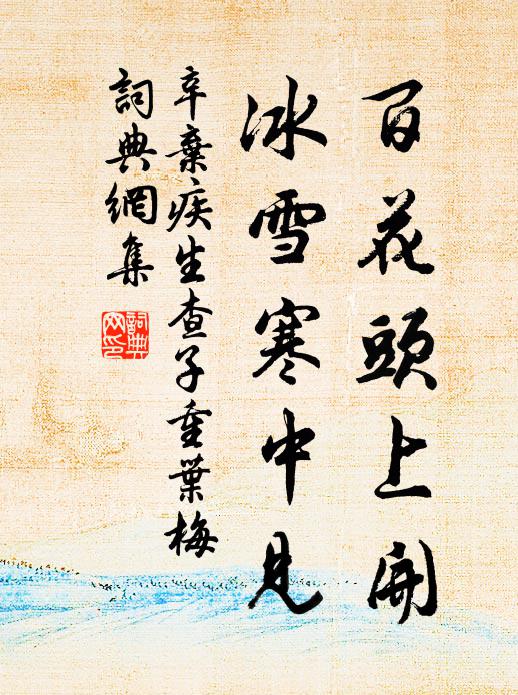 百花頭上開
冰雪寒中見
辛棄疾生查子重葉梅
詞典網集
詞典網印